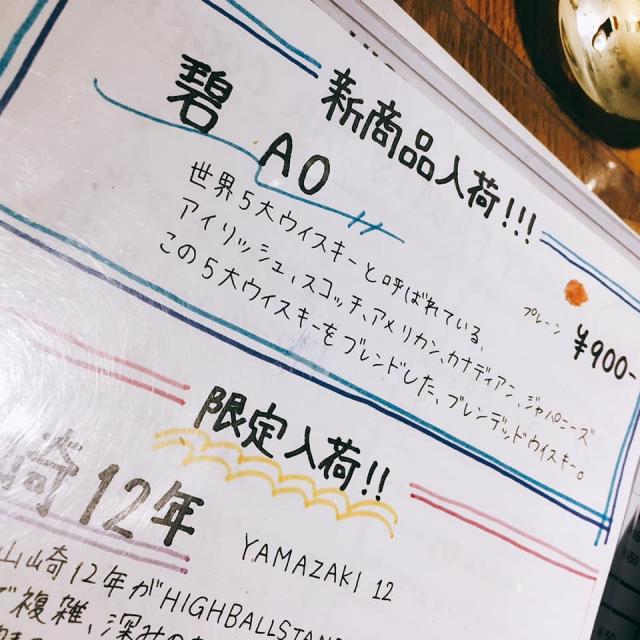 新商品入荷!!!
碧 AO
世界5大ウイスキーと呼ばれている、
アイリッシュ、スコッチ、アメリカン、カナディアン、ジャパニーズ
この5大ウイスキーをブレンドした、ブレンデッドウイスキー。
プレーン ¥900-
限定入荷!!
崎12年
YAMAZAKI 12
山崎12年がHIGHBALLSTAN
複雑、深み